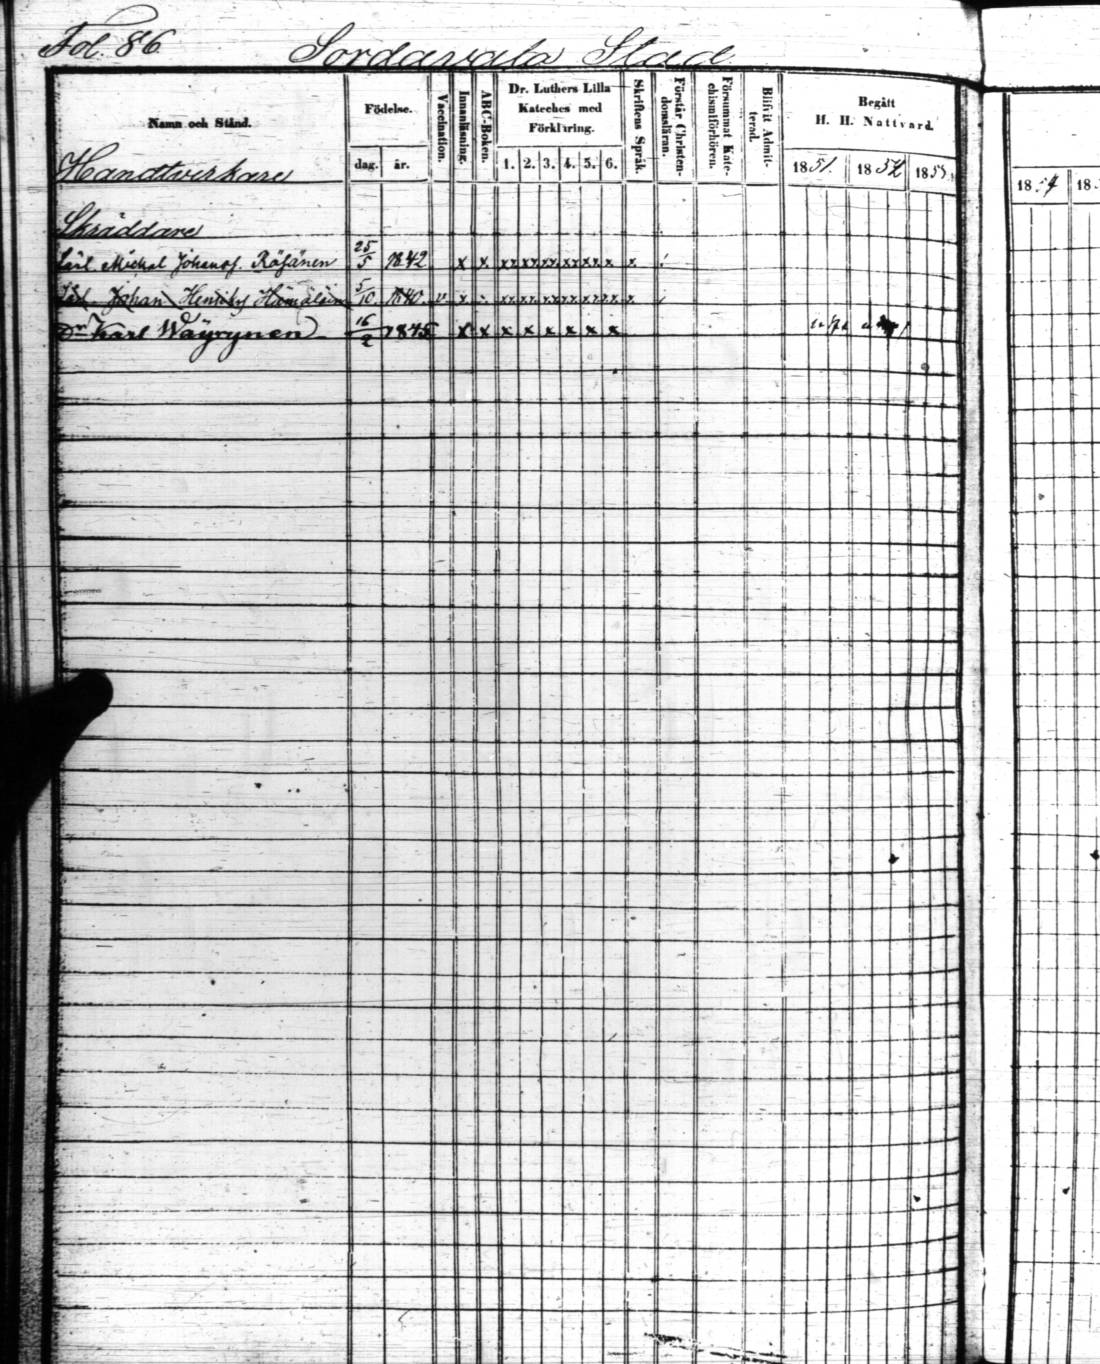 Fol. 86
Sordavala Stad
Namn och Stånd.
Födelse.
dag. år.
Vaccination.
Innanläsning.
ABC-Boken.
Dr. Luthers Lilla
Kateches med
Förklaring.
1. 2. 3. 4. 5. 6.
Skriftens Språk.
Förstår Christen-
domsläran.
Försummat Kate-
chismiförhören.
Blifvit Admit-
terad.
Begått
H. H. Nattvard.
1851. 1852 1853
1854 18
Handtverkare
Skräddare
Michel Johansf. Räsänen 25/5 1842 x x xx xx xx xx xx x x
Johan 5/10 1840 v x
Dr Karl Wäyrynen 16/2 1845 x x x x x x x x